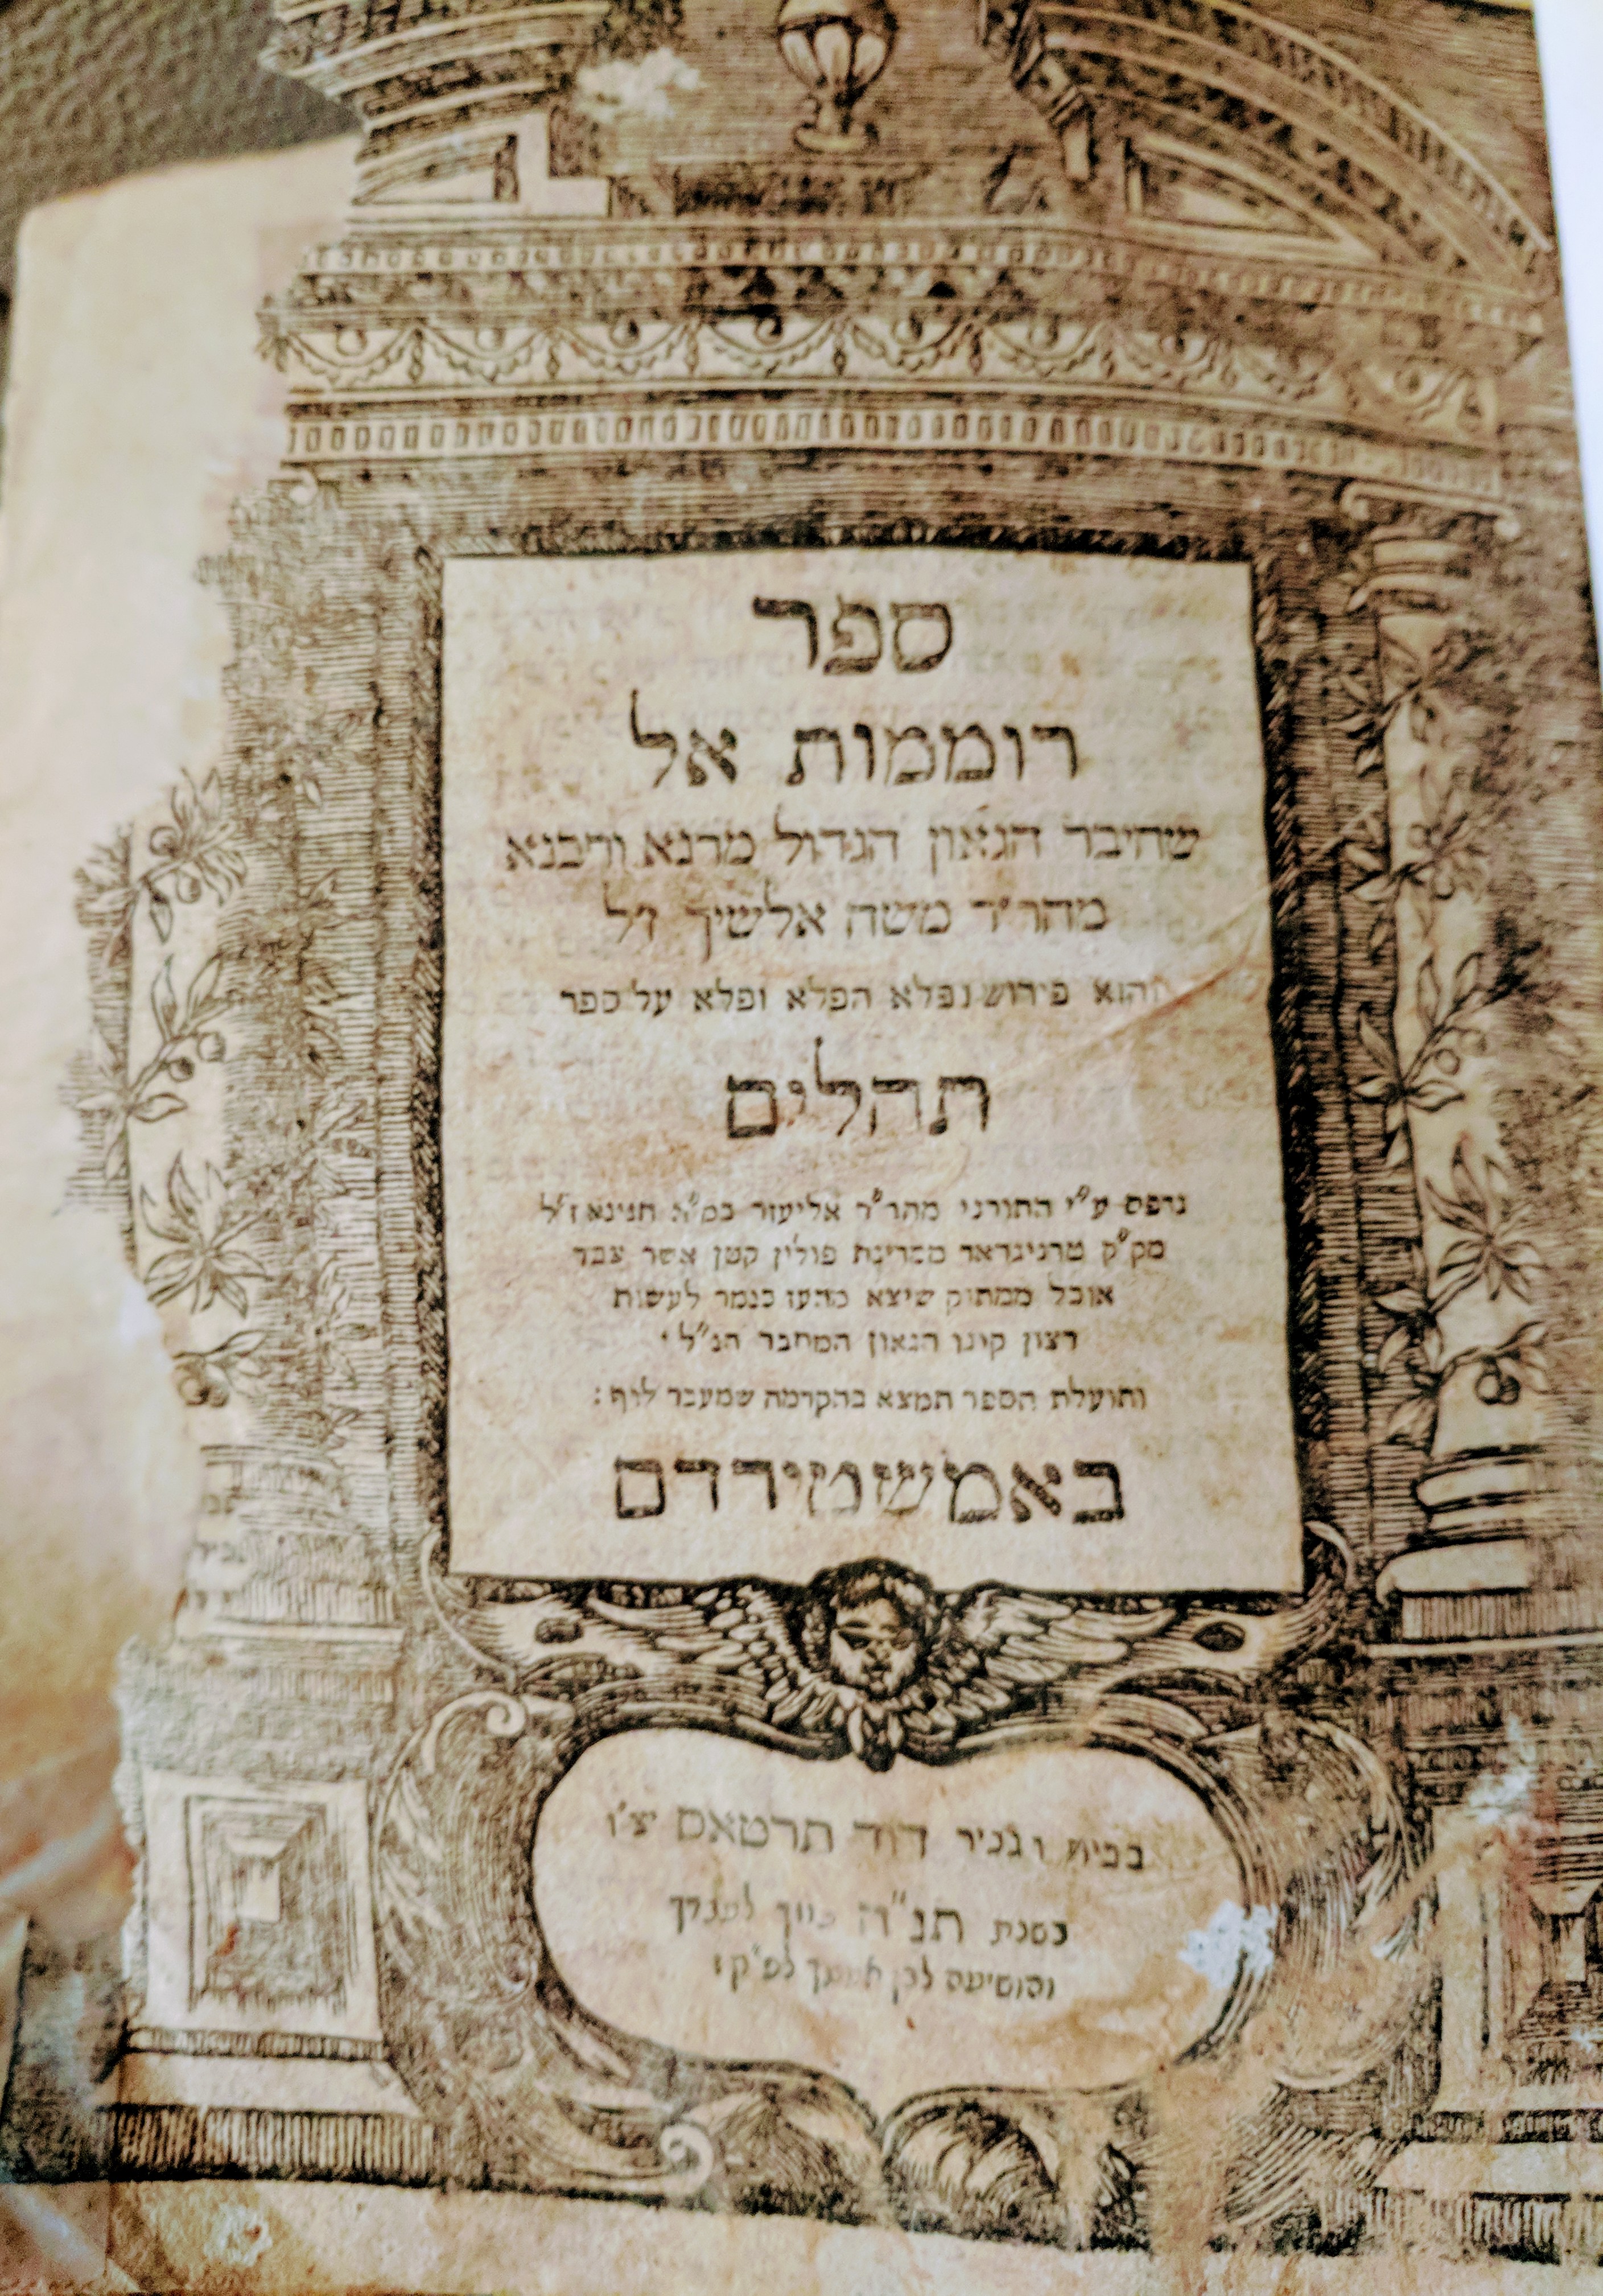 ספר
רוממות אל
שחיבר הגאון הגדול מרנא ורבנא
מהר״ר משה אלשיך ז״ל
והוא פירוש נפלא הפלא ופלא על ספר
תהלים
נדפס ע״י התורני מהר״ר אליעזר חנינא ז״ל
מק״ק ממדינת פולין קטן אשר עבד
אוכל ממתוק שיצא מהעז כנמר לעשות
רצון קונו הגאון המחבר הנ״ל
ותועלת הספר תמצא בהקדמה שמעבר לדף :
באמשטירדם
בבית דוד תרטאס יצ״ו
בשנת תנ״ה
והושיעה לבן לפ״ק